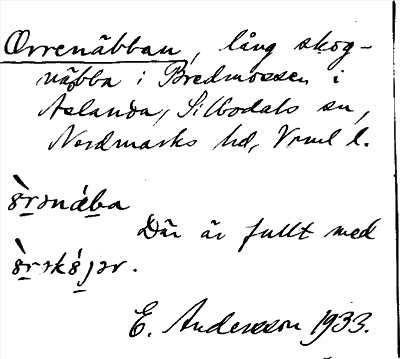 Orrenäbban, lång skog-
näbba i Bredmossen i
Aslanda, Silbodals sn,
Nordmarks hd, Vrml l.
Där är fullt med
E. Andersson 1933.